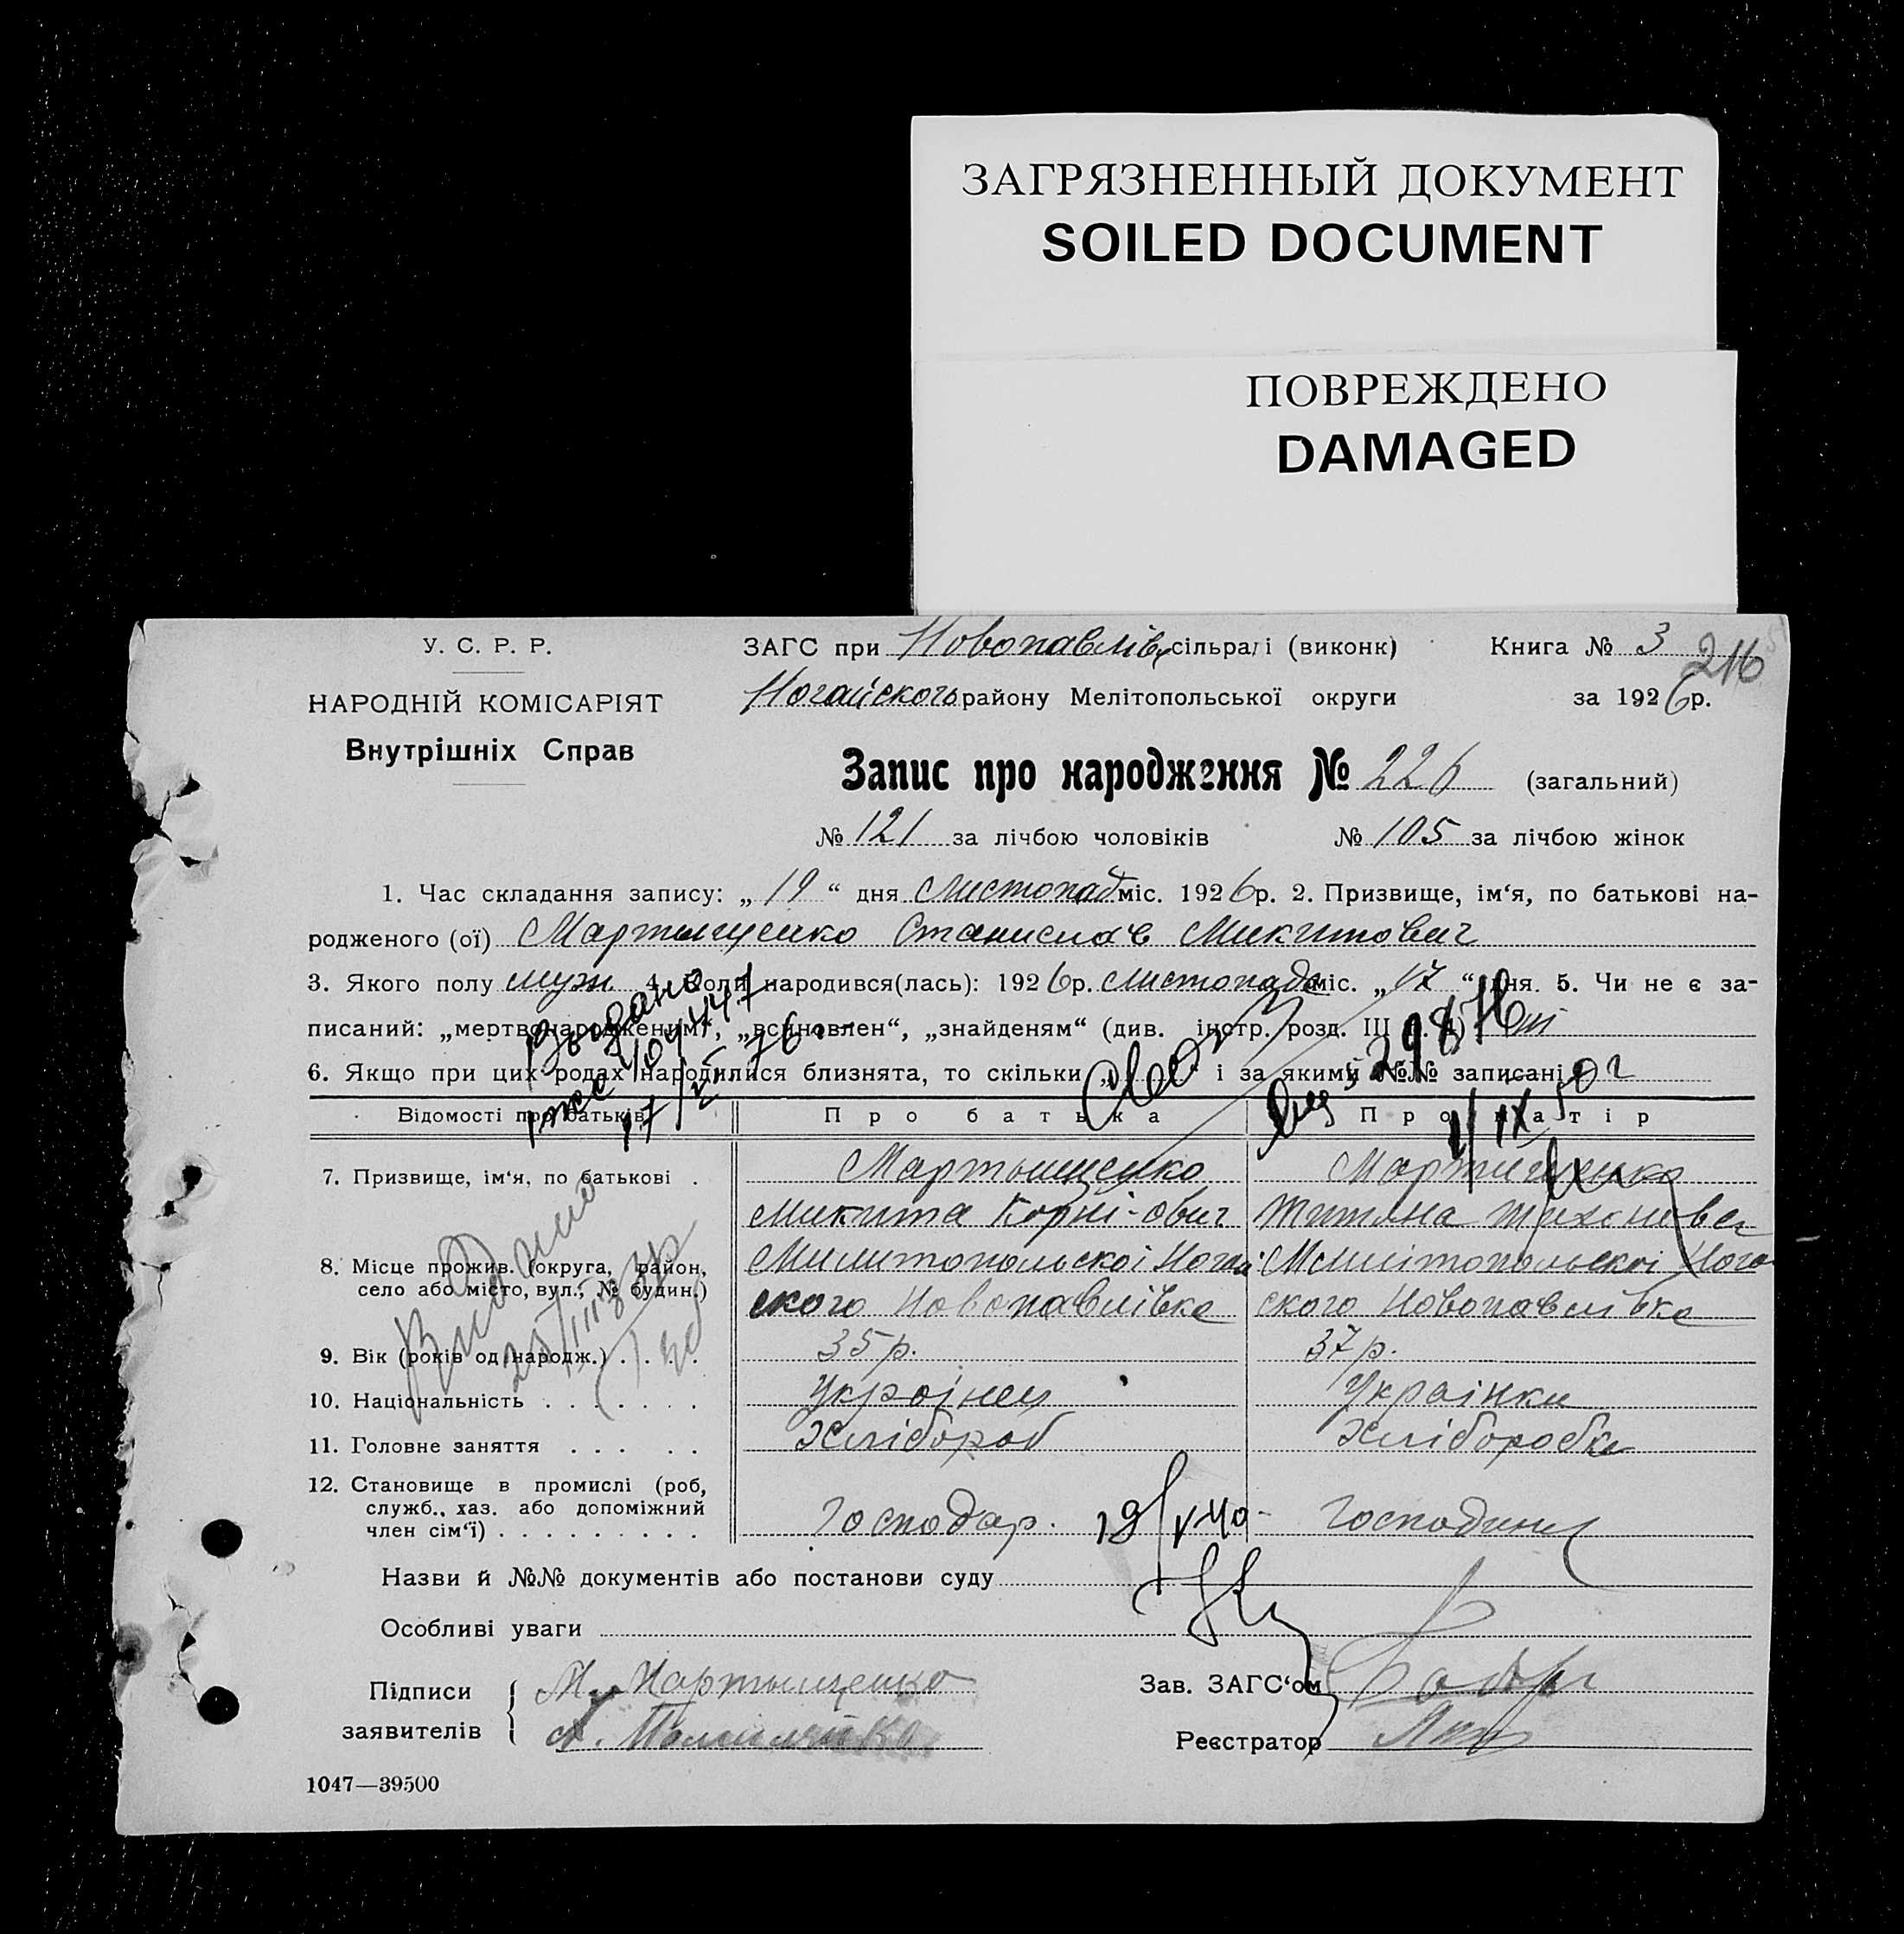 ЗАГРЯЗНЕННЫЙ ДОКУМЕНТ
SOILED DOCUMENT
ПОВРЕЖДЕНО
DAMAGED
У. С. Р. Р.
НАРОДНІЙ КОМІСАРІЯТ
Внутрішніх Справ
ЗАГС при Новопавлівс сільраді (виконк)
Книга № 3
216
Ногайского району Мелітопольської округи
за 1926 р.
Запис про народження № 226 (загальний)
№ 121 за лічбою чоловіків № 105 за лічбою жінок
1. Час складання запису: „19“ дня Листопад міс. 1926 р. 2. Призвище, ім‘я, по батькові на-
родженого (ої) Мартыщенко Станислав Микитович
3. Якого полу муж 4. Коли народився(лась): 1926 р. Листопада міс. „17“ дня. 5. Чи не є за-
писаний: „мертвонародженим“, „всиновлен“, „знайденям“ (див. інстр. розд. III п. 4) ні
6. Якщо при цих родах народилися близнята, то скільки „ “ і за якими №№ записані
Відомості про батьків Про батька Про матір
7. Призвище, ім‘я, по батькові . Мартыщенко Мартыщенко
Микита Корні-ович Титяна Тихоновна
8. Місце прожив. (округа, район, Милитопольскоі Ногай Мелітопольскоі Нога
село або місто, вул., № будин.) ского Новопавлівка ского Новопавлівка
9. Вік (років од народж.) . . . . 35 р. 37 р.
10. Національність . . . . . . . Украінец Украінка
11. Головне заняття . . . . . Хлібороб Хліборобка
12. Становище в промислі (роб,
служб., хаз. або допоміжний
член сім‘ї) . . . . . . . . . Господар. Господиня
19/V 40
Назви й №№ документів або постанови суду
Особливі уваги
Підписи заявителів
М. Мартыщенко
Зав. ЗАГС‘ом
Реєстратор
1047—39500